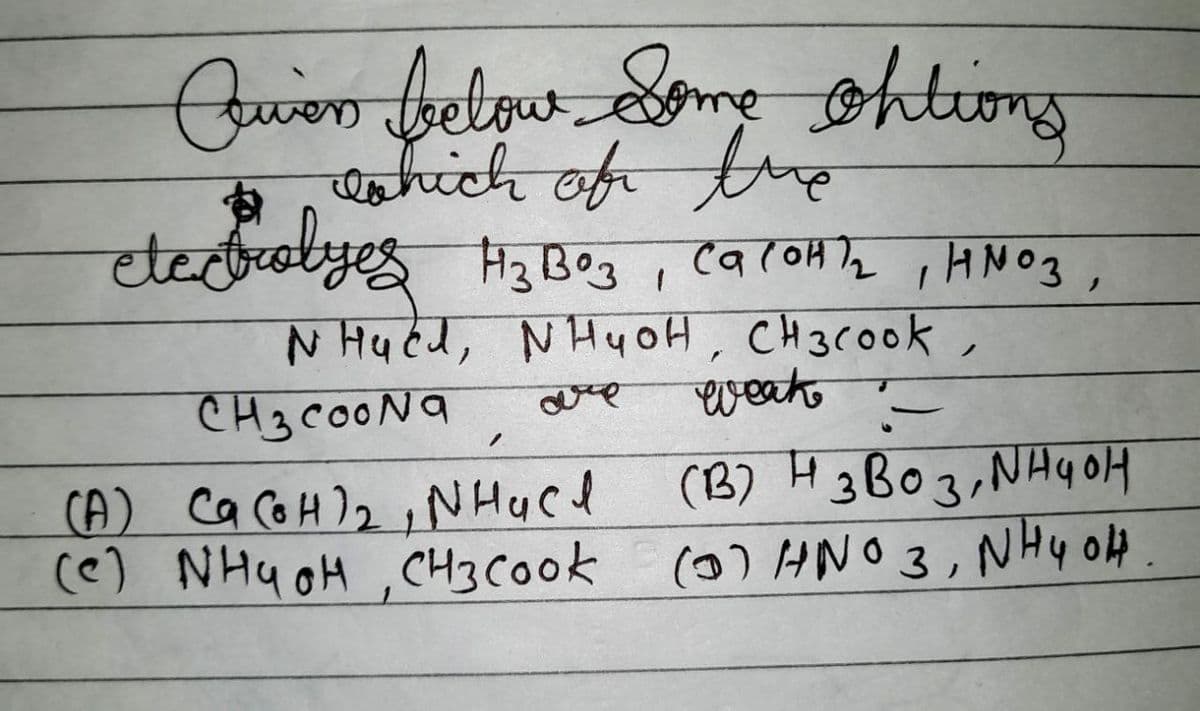 Given below Some Options
which of the
electrolyes H3BO3, Ca(OH)2, HNO3,
NH4Cl, NH4OH, CH3COOK,
CH3COONa, are weak :-
(A) Ca(OH)2, NH4Cl (B) H3BO3, NH4OH
(C) NH4OH, CH3COOK (D) HNO3, NH4OH.